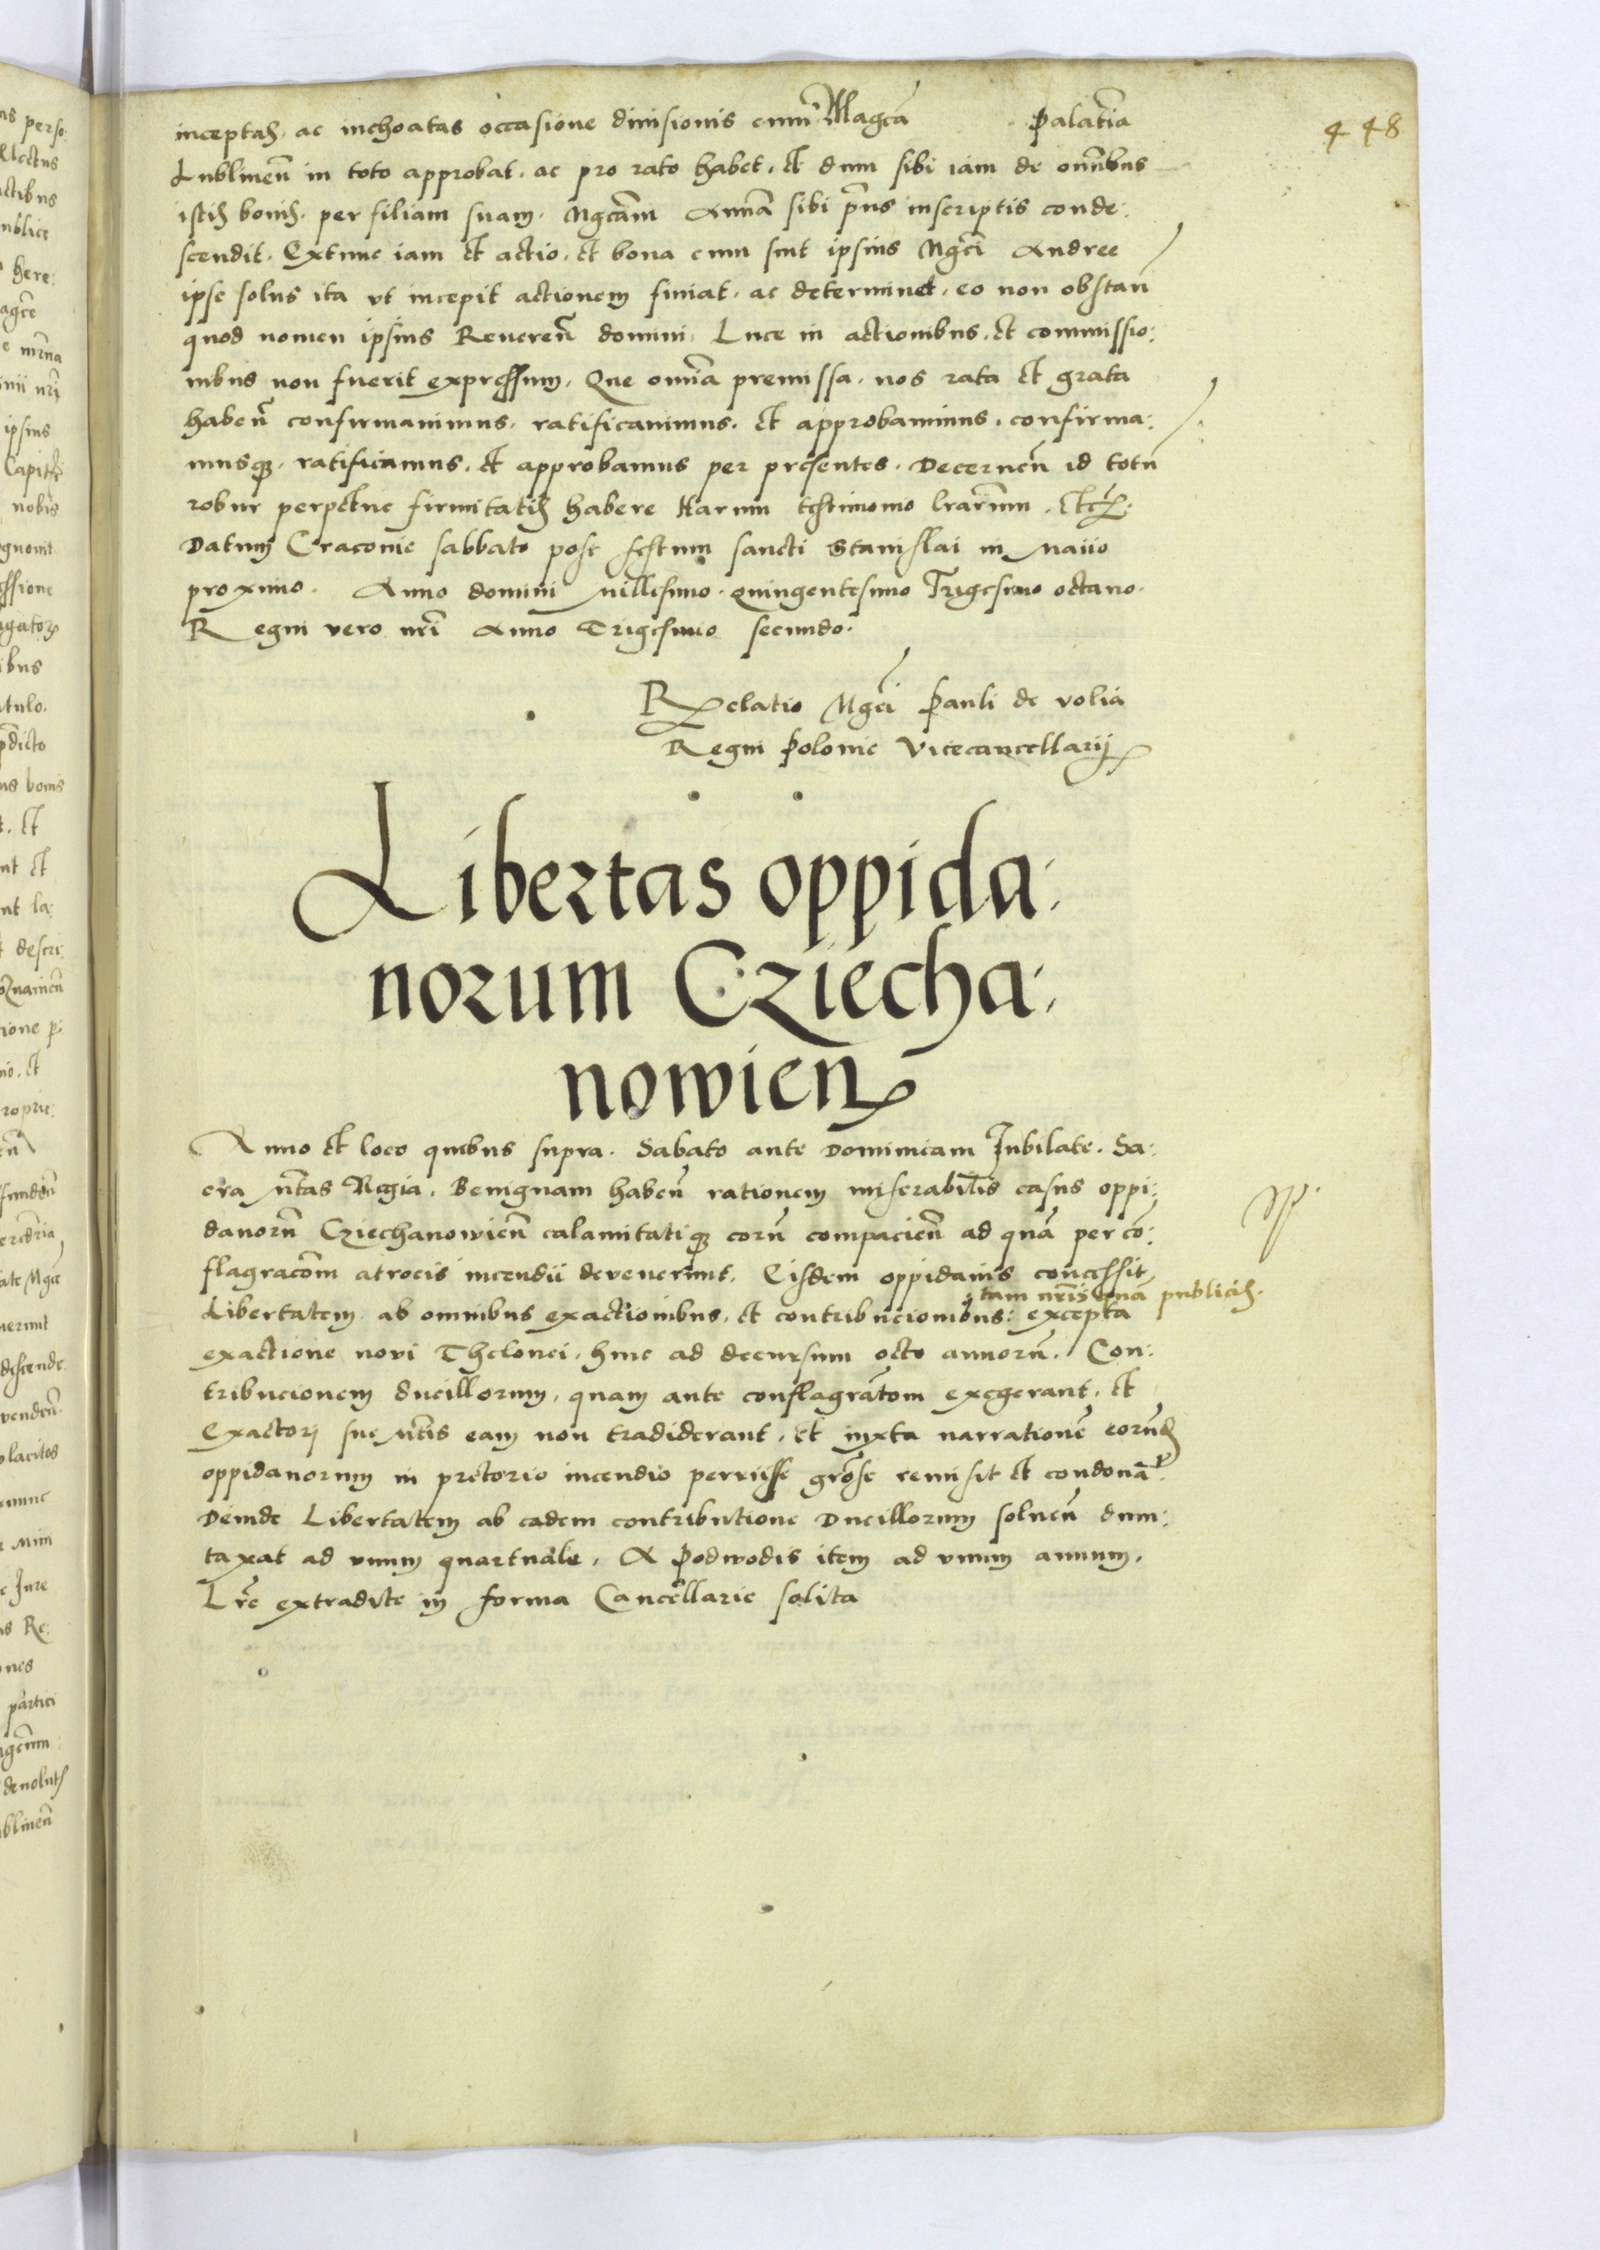 448
inceptas, ac inchoatas occasione diuisionis cum Magca Palatia
Lublineñ in toto approbat, ac pro rato habet, et dum sibi iam de omnibus
istis bonis, per filiam suam, Mgcam Annā sibi prius inscriptis conde:
scendit, Extunc iam et actio, et bona cum sint ipsius Mgci Andree
ipse solus ita vt incepit actionem finiat, ac determinet, eo non obstañ
quod nomen ipsius Reuereñ domini Luce in actionibus, et commissio:
nibus non fuerit expressum, Que omnia premissa, nos rata et grata
habeñ confirmauimus, ratificauimus, et approbauimus, confirma:
musq3, ratificamus, et approbamus per presentes, Decerneñ id totū
robur perpetue firmitatis habere Harum testimonio lrarum, etc.
Datum Cracouie sabbato post festum sancti Stanislai in Maiio
proximo. Anno domini Millesimo quingentesimo Trigesimo octauo.
Regni vero nrī Anno Trigesimo secundo.
Relatio Mgci Pauli de volia
Regni Polonie Vicecancellarij
Libertas oppida:
norum Cziecha:
nowieñ
Anno et loco quibus supra. Sabato ante Dominicam Jubilate. Sa:
cra Mtas Regia, Benignam habeñ rationem miserabilis casus oppi:
danorū Cziechanowieñ calamitatiq3 eorū compacieñ ad quā per cō:
flagracōm atrocis incendii deuenerunt, Eisdem oppidanis concessit
tam nrīs quā publicis.
Libertatem ab omnibus exactionibus, et contribucionibus: excepta
exactione noui Thelonei, hinc ad decursum octo annorū. Con:
tribucionem ducillorum, quam ante conflagratōm exegerant, et
Exactori sue Mtis eam non tradiderant, et iuxta narrationē eorūd
oppidanorum in pretorio incendio periisse grose remisit et condonā
Deinde Libertatem ab eadem contributione Ducillorum soluēn dum:
taxat ad vnum quartuale, A Podwodis item ad vnum annum,
Lrē extradite in forma Cancellarie solita